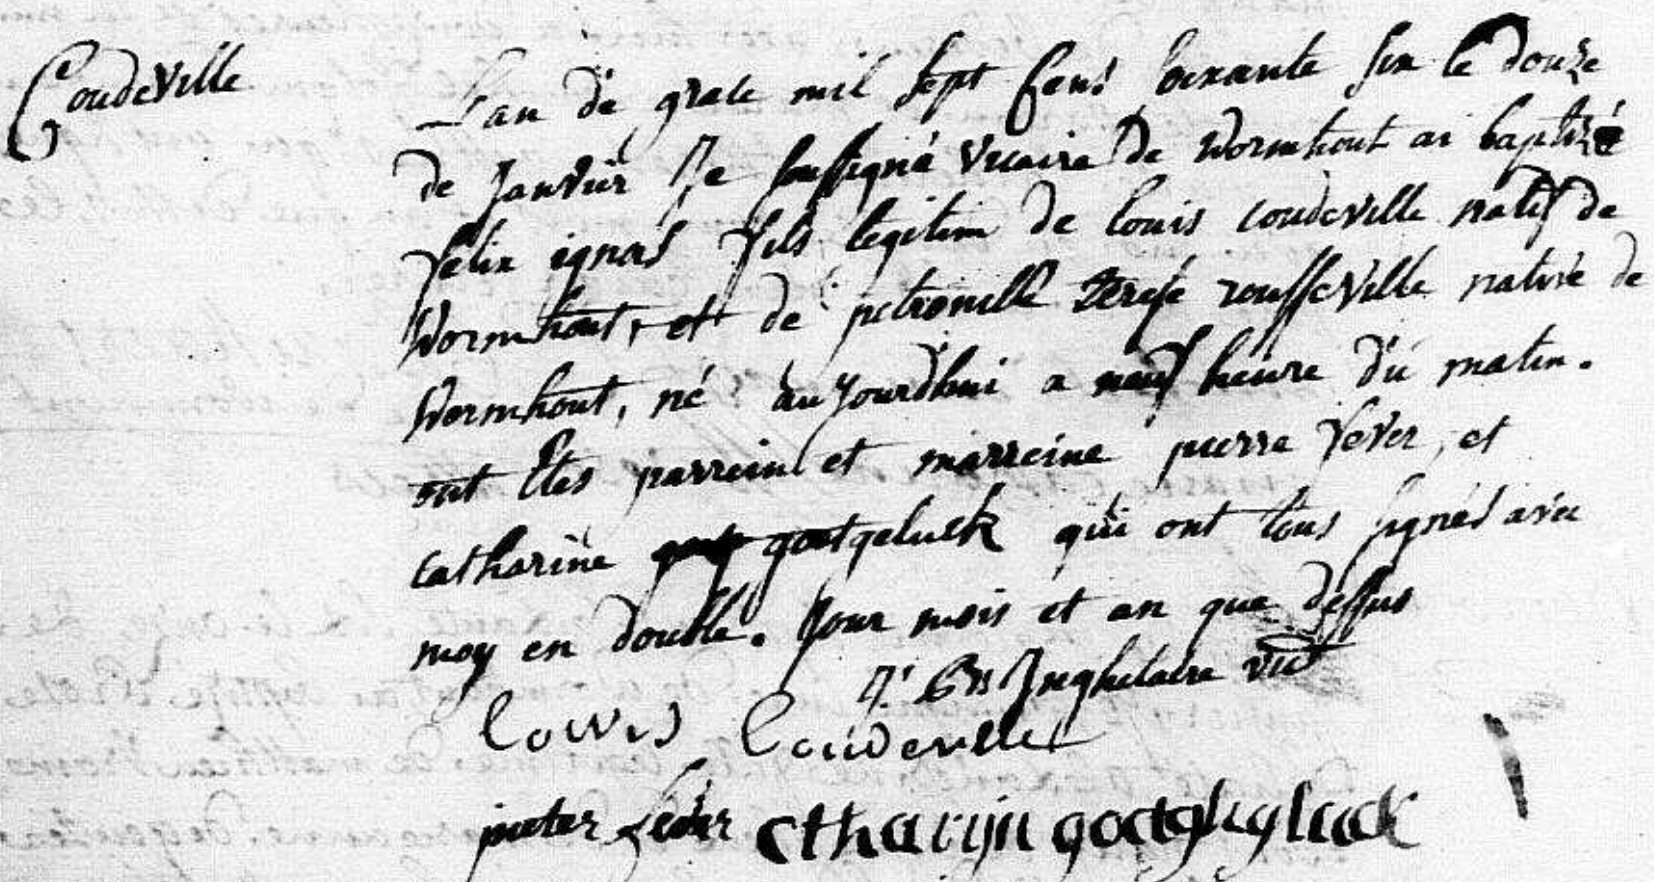 Coudeville
L'an de grace mil sept cens soixante six le douze
de Janvier Je soussigné vicaire de wormhout ai baptizé
felix ignas fils legitim de louis coudeville natif de
Wormhout, et de petronille terese rousseville native de
Wormhout, né aujourdhui a neuf heure du matin.
ont étés parrein et marreine pierre fever, et
catharine goetgeluck qui ont tous signés avec
moy en double. Jour mois et an que dessus
Inghelaere vic
Louis Coudeville
pieter
cthargn goetgheluck